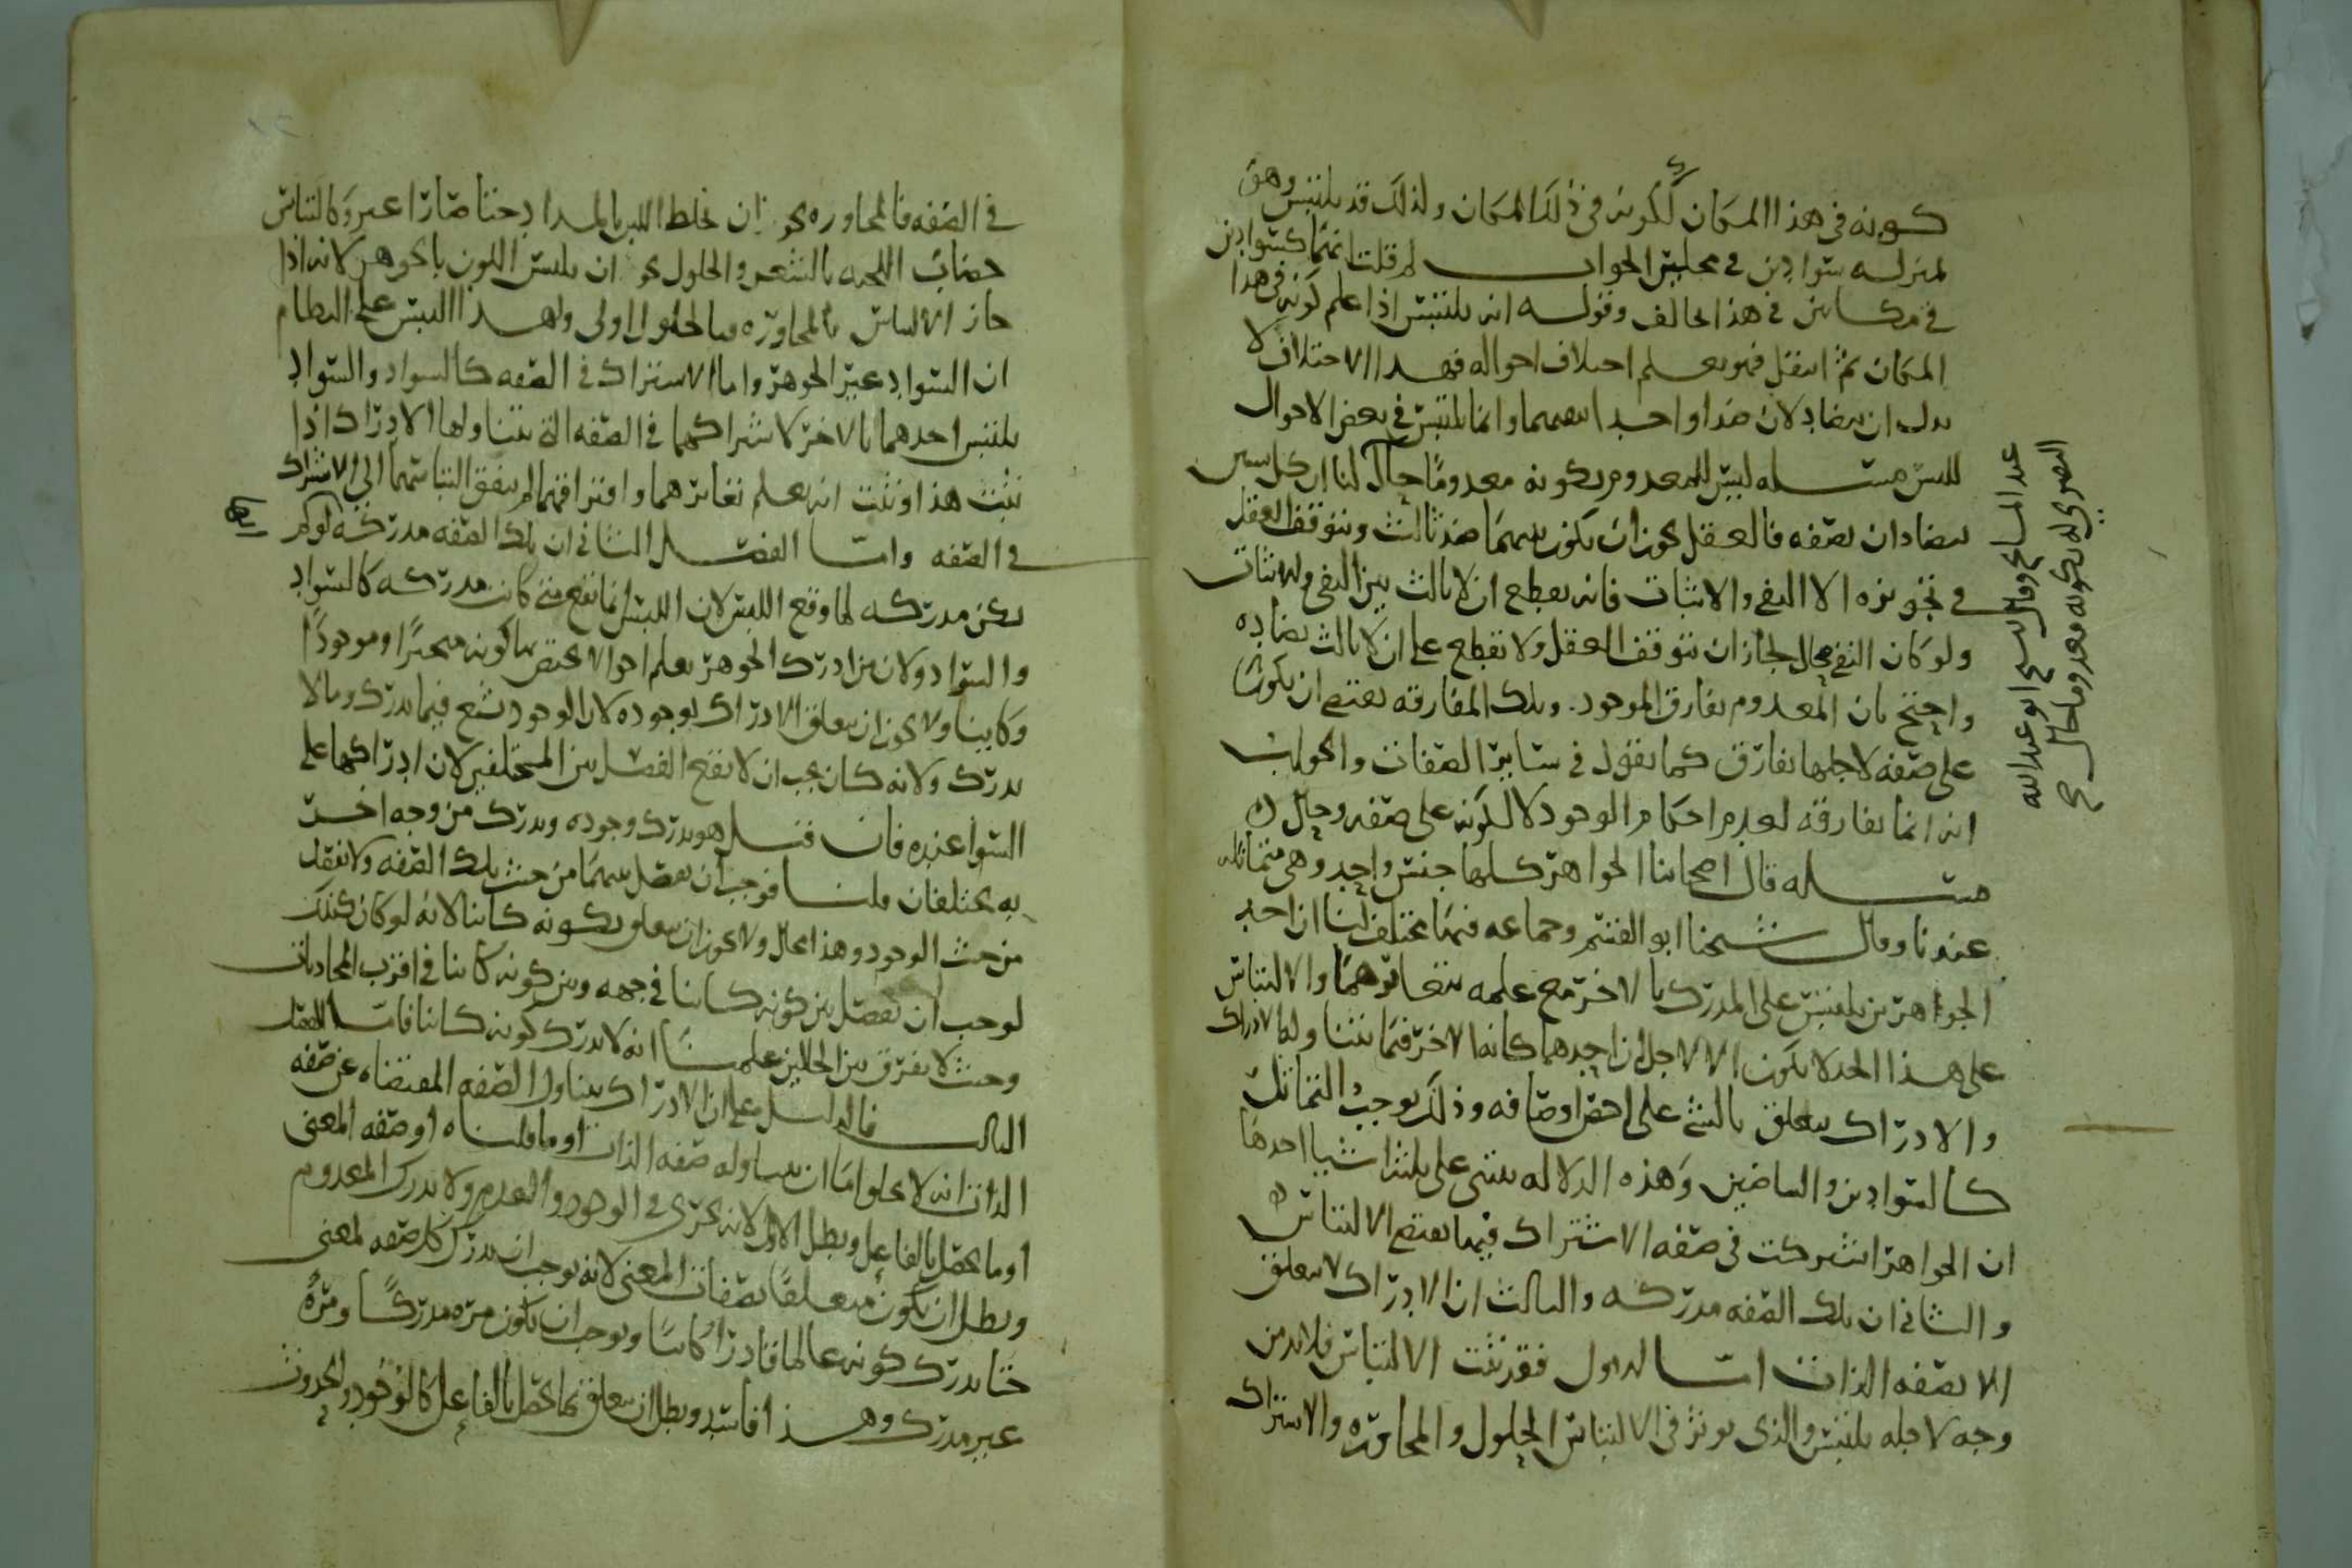 كونه في هذا المكان ككونه في ذلك المكان ولذلك قد يلتبس وهو
بمنزلة سوادين في محلين الجواب لم قلت انهما كسوادين
في مكانين في هذا خالف وقوله انه يلتبس اذا علم كونه في هذا
المكان ثم انتقل فهو يعلم اختلاف احواله فهذا الاختلاف لا
يدل ان يتضاد لان ضدا واحدا وانما يلتبس في بعض الاحوال
للبس مسله ليس للمعدوم بكونه معدومًا حال لنا ان كل شيين
يتضادان بصفه فالعقل يجوز ان يكون بينهما ضد ثالث ويتوقف العقل
في تجويزه الا النفي والاثبات فانه يقطع ان لا ثالث بين النفي والاثبات
ولو كان النفي بحال لجاز ان يتوقف العقل ولا يقطع على ان لا ثالث يضاده
واحتج بان المعدوم يفارق الموجود وتلك المفارقه يقتضي ان يكونا
على صفه لاجلها يفارق كما يقول في ساير الصفات والجواب
انه انما يفارقه لعدم احكام الوجود لا لكونه على صفه وحال
مسله قال اصحابنا الجواهر كلها جنس واحد وهي متماثله
عندنا وقال شيخنا ابو القسم وجماعه فيها مختلف لنا ان احد
الجواهرين يلتبس على المدرك بالاخر مع علمه بتغايرهما والالتباس
على هذا الحد لا يكون الا لاجل ان احدهما كانه الاخر فيما يتناوله الادراك
والادراك يتعلق بالشي على اخص اوصافه وذلك يوجب التماثل
كالسوادين والبياضين وهذه الدلاله تبتنى على ثلثة اشيا احدها
ان الجواهر اشتركت في صفه الاشتراك فيها يقتضي الالتباس
والثاني ان تلك الصفه مدركه والثالث ان الادراك لا يتعلق
الا بصفه الذات اما الاول فقد ثبت الالتباس فلا بد من
وجه لاجله يلتبس والذي يوثر في الالتباس الحلول والمجاوره والاشتراك
عبد المسايح وقال الشيخ ابو عبد الله
البصري له بكونه معدوما حال صح
في الصفه فالمجاوره نحو ان يخلط اللبن بالمداد حتا صارا وكالتباس
خضاب اللحيه بالشعر والحلول نحو ان يلتبس اللون بالجوهر لانه اذا
جاز الالتباس بالمجاوره فبالحلول اولى ولهذا التبس على النظام
ان السواد غير الجوهر واما الاشتراك في الصفه كالسواد والسواد
يلتبس احدهما بالاخر لاشتراكهما في الصفه التي يتناولها الادراك اذا
ثبت هذا وثبت انه يعلم تغايرهما وافتراقهما لم يبق التباسهما الا الاشتراك
في الصفه واما الفصل الثاني ان تلك الصفه مدركه لو لم
يكن مدركه لما وقع اللبس لان اللبس انما يقع متى كانت مدركه كالسواد
والسواد ولان من ادرك الجوهر يعلم احوالا يختص بها كونه متحيزًا وموجودًا
وكاينا ولا يجوز ان يتعلق الادراك بوجوده لان الوجود شع فيما يدرك وما لا
يدرك ولانه كان يجب ان لا يقع الفصل بين المختلفين لان ادراكهما على
السوا عنده فان قيل هو يدرك وجوده ويدرك من وجه اخر
به يختلفان قلنا فوجب ان يفصل بينهما من حيث تلك الصفه ولا يفصل
من حيث الوجود وهذا محال ولا يجوز ان يتعلق بكونه كاينا لانه لو كان كذلك
لوجب ان يفصل بين كونه كاينا في جهه وبين كونه كاينا في اقرب المحاذيات
وحيث لا يفرق بين الحالين علمنا انه لا يدرك كونه كاينا فاما الفصل
الثالث فالدليل على ان الادراك يتناول الصفه المقتضاه عن صفه
الذات انه لا يخلو اما ان يتناوله صفه الذات او ما قلناه او صفه المعنى
او ما يحصل بالفاعل وبطل الاول لانه يجري في الوجود والعدم ولا يدرك المعدوم
وبطل ان يكون متعلقًا بصفات المعنى لانه يوجب ان يدرك كل صفه لمعنى
حتا يدرك كونه عالما قادرا كاينا ويوجب ان يكون مره مدركًا ومرهً
غير مدرك وهذا فاسد وبطل ان يتعلق بما يحصل بالفاعل كالوجود والحدوث